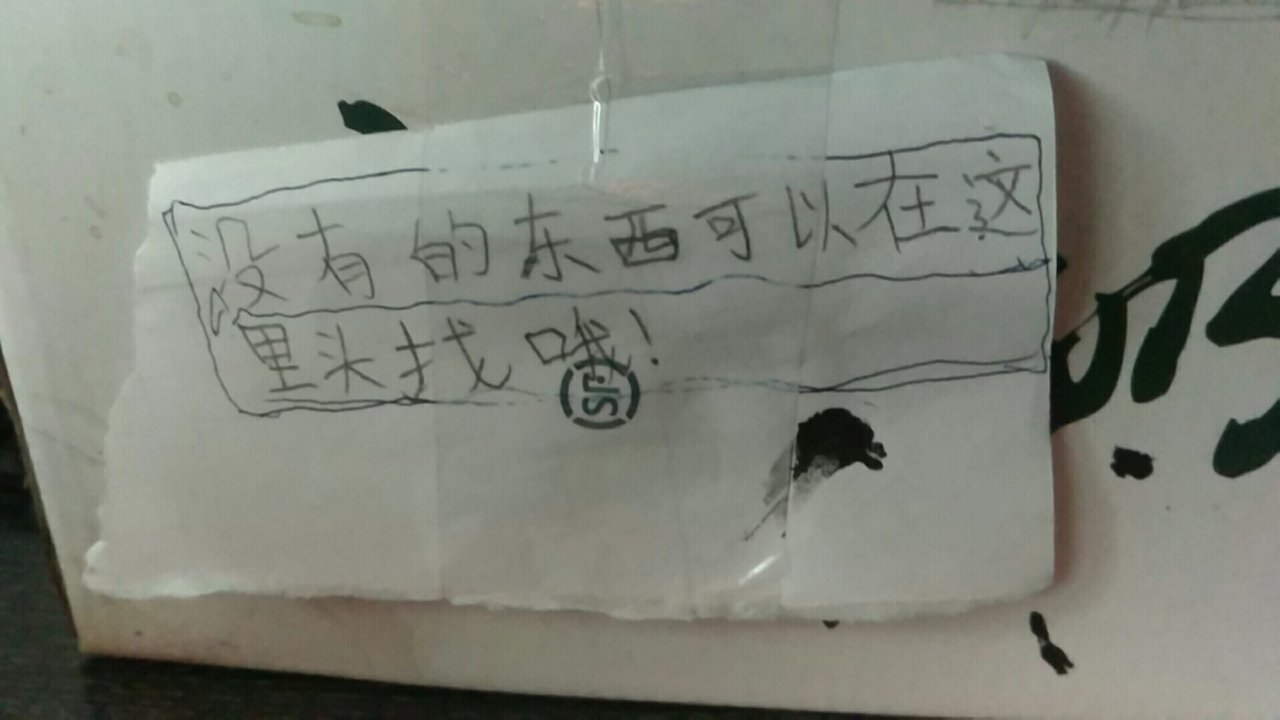 没有的东西可以在这
里头找哦!
JS